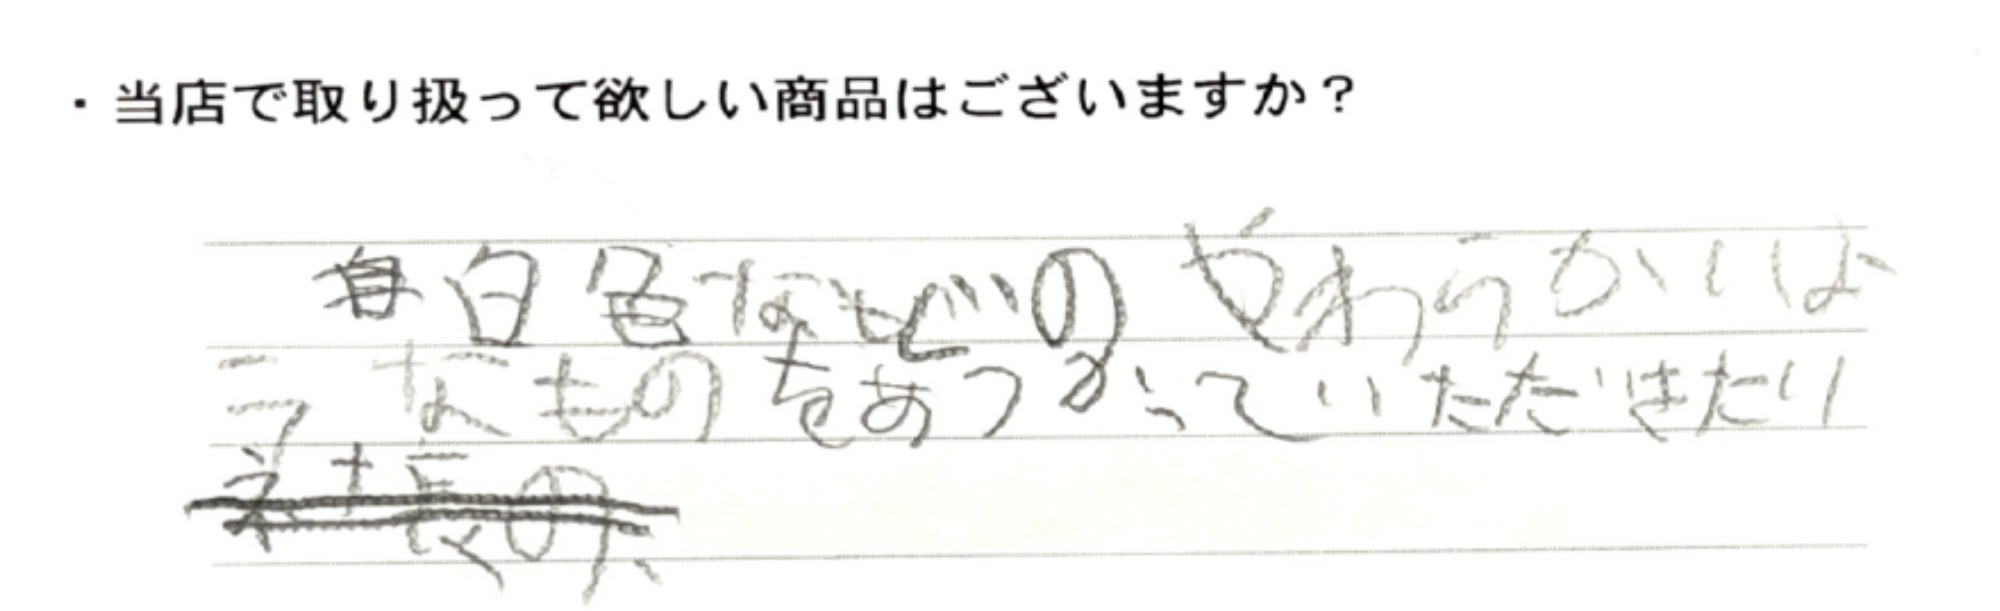 ・当店で取り扱って欲しい商品はございますか？
白色などのやわらかいよ
うなものをあつかっていただきたい
社長の